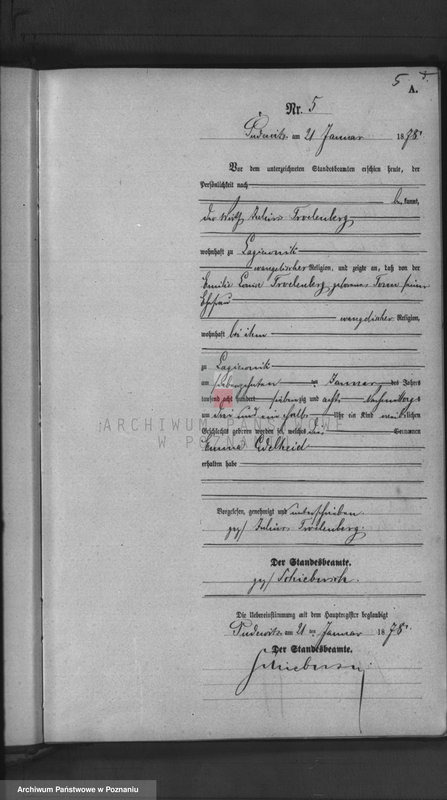 5
A.
Nr. 5
Pudewitz am 21 Januar 1878.
Vor dem unterzeichneten Standesbeamten erschien heute, der
Persönlichkeit nach
be kannt,
der Wirth Julius Troelenberg
wohnhaft zu Lagiewnik
evangelischer Religion, und zeigte an, daß von der
Emilie Louise Troelenberg geborenen seiner
Ehefrau
evangelischer Religion,
wohnhaft bei ihm
zu Lagiewnik
am siebenzehnten Januar des Jahres
tausend acht hundert siebenzig und acht
um drei und ein halb Uhr ein Kind weiblichen
Geschlechts geboren worden sei, welches Vornamen
Emma Edelheid
erhalten habe
ARCHIWUM PAŃSTWOWE
W POZNANIU
Vorgelesen, genehmigt und unterschrieben.
gez/ Julius Troelenberg.
Der Standesbeamte.
gez/
Die Uebereinstimmung mit dem Hauptregister beglaubigt
Pudewitz am 21 ten Januar 1878.
Der Standesbeamte.
Archiwum Państwowe w Poznaniu